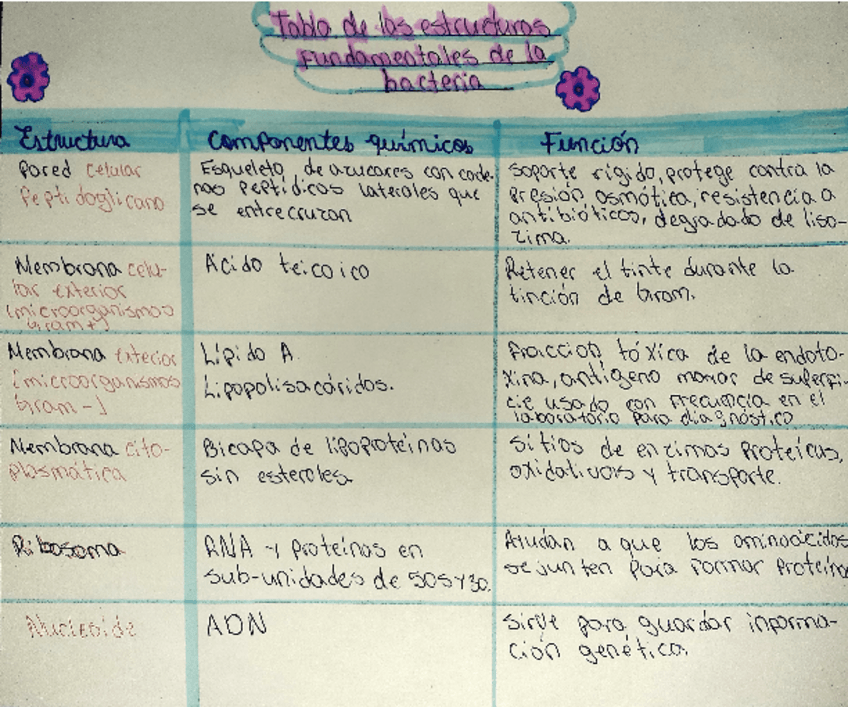 Tabla de las estructuras
Fundamentales de la
bacteria
Estructura
Componentes químicos
Función
Pared celular
Peptidoglicano
Esqueleto de azucares con cade-
nas peptídicas laterales que
se entrecruzan
Soporte rígido, protege contra la
presión osmótica, resistencia a
antibióticos, degradado de liso-
zima.
Membrana celu-
lar exterior
(microorganismos
Gram+)
Acido teicoico
Retener el tinte durante la
tinción de Gram.
Membrana exterior
(microorganismos
Gram-)
Lípido A.
Lipopolisacáridos.
Fracción tóxica de la endoto-
xina, antígeno mayor de superfi-
cie usado con frecuencia en el
laboratorio para diagnóstico
Membrana cito-
plasmática
Bicapa de lipoproteínas
sin esteroles
Sitios de enzimas proteícas,
oxidativas y transporte.
Ribosoma
RNA y proteínas en
sub-unidades de 50S y 30.
Ayudan a que los aminoácidos
se junten para formar proteína
Nucleoide
ADN
Sirve para guardar informa-
ción genética.